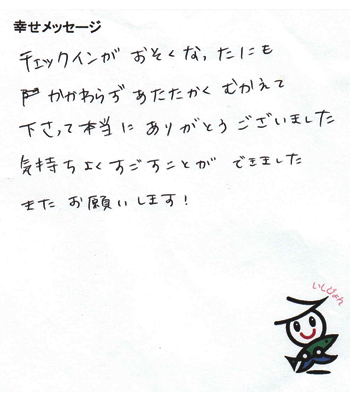 幸せメッセージ
チェックインが おそくなったにも
かかわらず あたたかく むかえて
下さって本当に ありがとうございました
気持ちよくすごすことが できました
また お願いします!